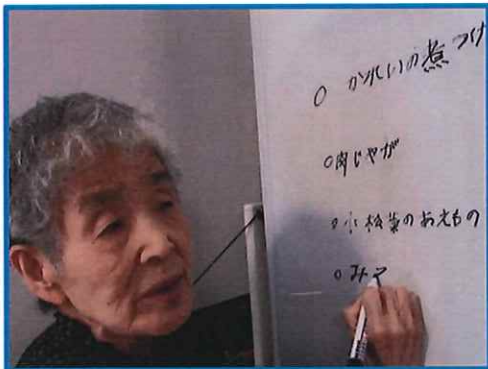 ○ かれいの煮つけ
○肉じゃが
○小松菜のあえもの
○みそ